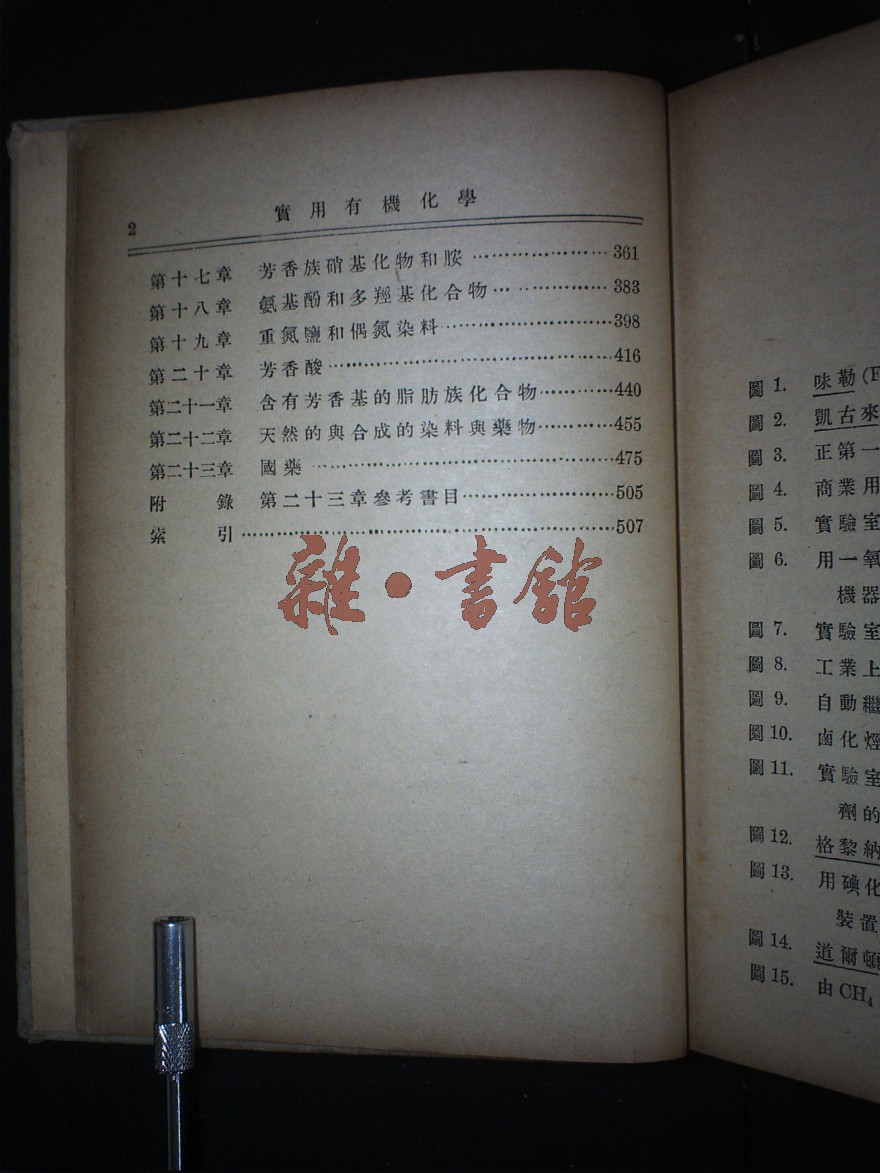 2 實用有機化學
第十七章 芳香族硝基化物和胺……………………361
第十八章 氨基酚和多羥基化合物……………………383
第十九章 重氮鹽和偶氮染料……………………398
第二十章 芳香酸……………………416
第二十一章 含有芳香基的脂肪族化合物……………………440
第二十二章 天然的與合成的染料與藥物……………………455
第二十三章 國藥……………………475
附錄 第二十三章參考書目……………………505
索引……………………507
雜·書館
圖 1. 味勒(F
圖 2. 凱古來
圖 3. 正第一
圖 4. 商業用
圖 5. 實驗室
圖 6. 用一氧
機器
圖 7. 實驗室
圖 8. 工業上
圖 9. 自動繼
圖 10. 鹵化烴
圖 11. 實驗室
劑的
圖 12. 格黎納
圖 13. 用碘化
裝置
圖 14. 道爾頓
圖 15. 由CH₄